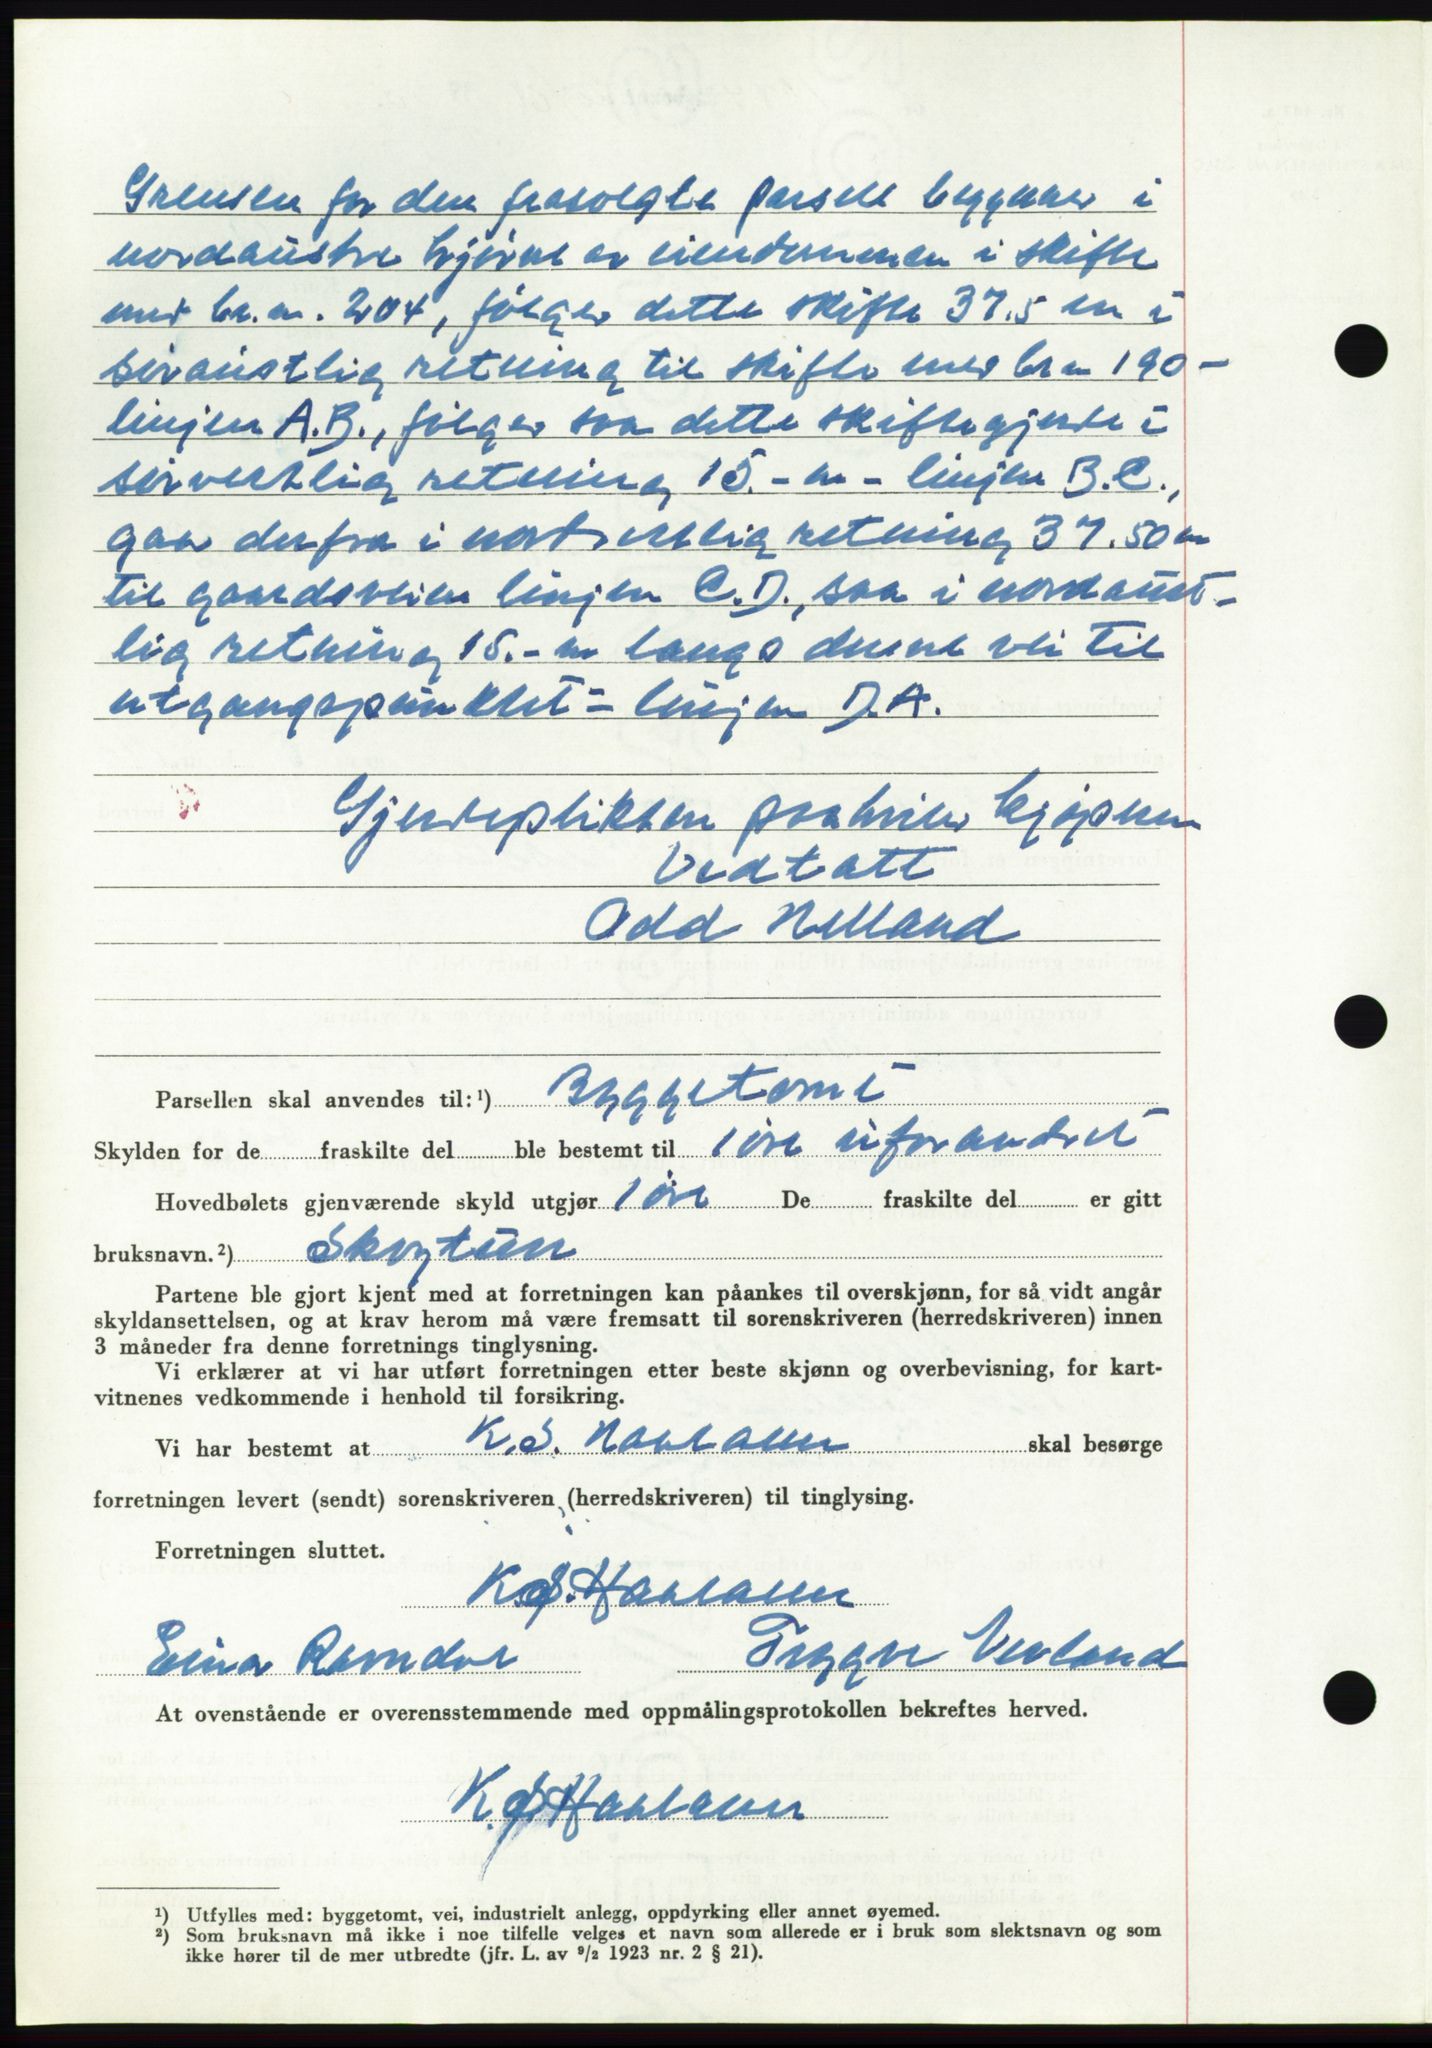 Grensen for den frasolgte parsell begynner i
nordaustre hjørne av eiendommen i skifte
med br.n. 204, følger dette skifte 37.5 m i
søraustlig retning til skifte med br n 190 –
linjen A.B., følger saa dette skiftegjerde i
sørvestlig retning 15.- m – linjen B.C.,
gaar derfra i nordvestlig retning 37.50 m
til gaardsveien linjen C.D., saa i nordaust-
lig retning 15.- m langs denne vei til
utgangspunktet – linjen D.A.
Gjerdeplikten paahviler kjøperen
Vedtatt
Odd Helland
Parsellen skal anvendes til: ¹) Byggetomt
Skylden for de fraskilte del ble bestemt til 1 øre uforandret
Hovedbølets gjenværende skyld utgjør 1 øre De fraskilte del er gitt
bruksnavn. ²) Skogtun
Partene ble gjort kjent med at forretningen kan påankes til overskjønn, for så vidt angår
skyldansettelsen, og at krav herom må være fremsatt til sorenskriveren (herredskriveren) innen
3 måneder fra denne forretnings tinglysning.
Vi erklærer at vi har utført forretningen etter beste skjønn og overbevisning, for kart-
vitnenes vedkommende i henhold til forsikring.
Vi har bestemt at K.S. skal besørge
forretningen levert (sendt) sorenskriveren (herredskriveren) til tinglysing.
Forretningen sluttet.
K.S.
Einar Ramdal Trygve
At ovenstående er overensstemmende med oppmålingsprotokollen bekreftes herved.
K.S.
¹) Utfylles med: byggetomt, vei, industrielt anlegg, oppdyrking eller annet øyemed.
²) Som bruksnavn må ikke i noe tilfelle velges et navn som allerede er i bruk som slektsnavn og som
ikke hører til de mer utbredte (jfr. L. av ⁹/₂ 1923 nr. 2 § 21).